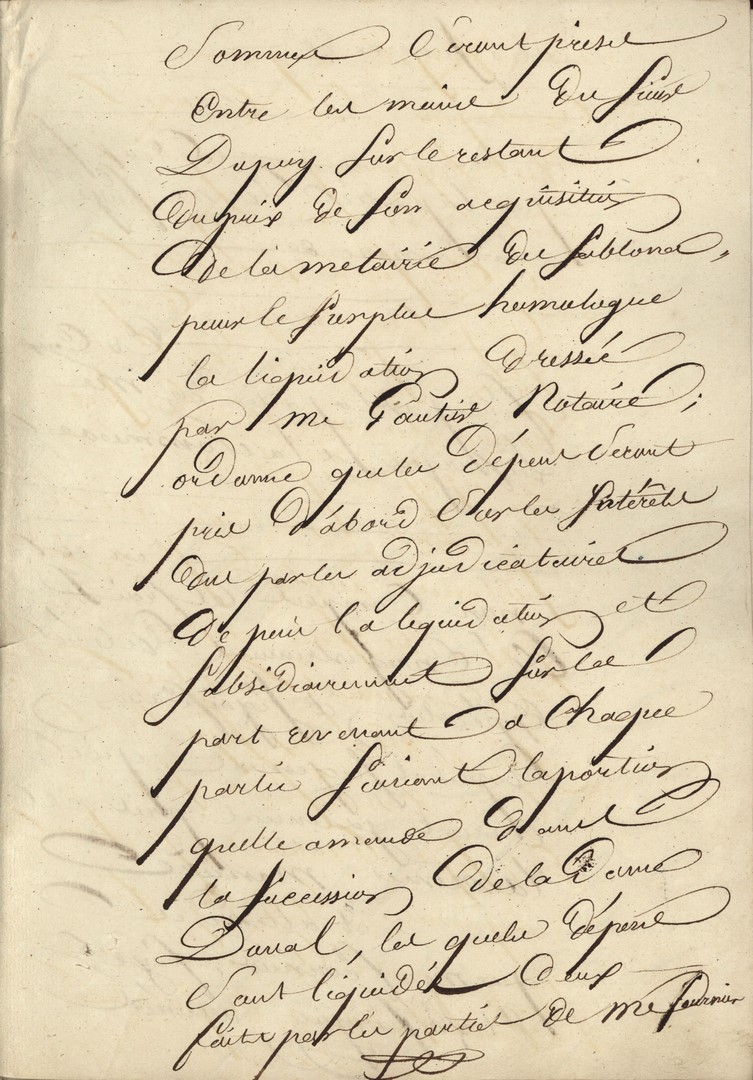 Sommes seront prises
Entre les mains du sieur
Dupuy sur le restant
du prix de son acquisition
de la metairie des sablons,
pour le surplus homologue
la liquidation dressée
par me Gautier Notaire ;
ordonne que les dépens seront
pris d'abord sur les Intérêts
dus par les adjudicataires
depuis la liquidation et
subsidiairement sur la
part revenant a Chaque
partie suivant la portion
quelle amende dans
la succession de la Dame
Duval, les quels dépens
sont liquidés Ceux
faits par les parties de me fournier